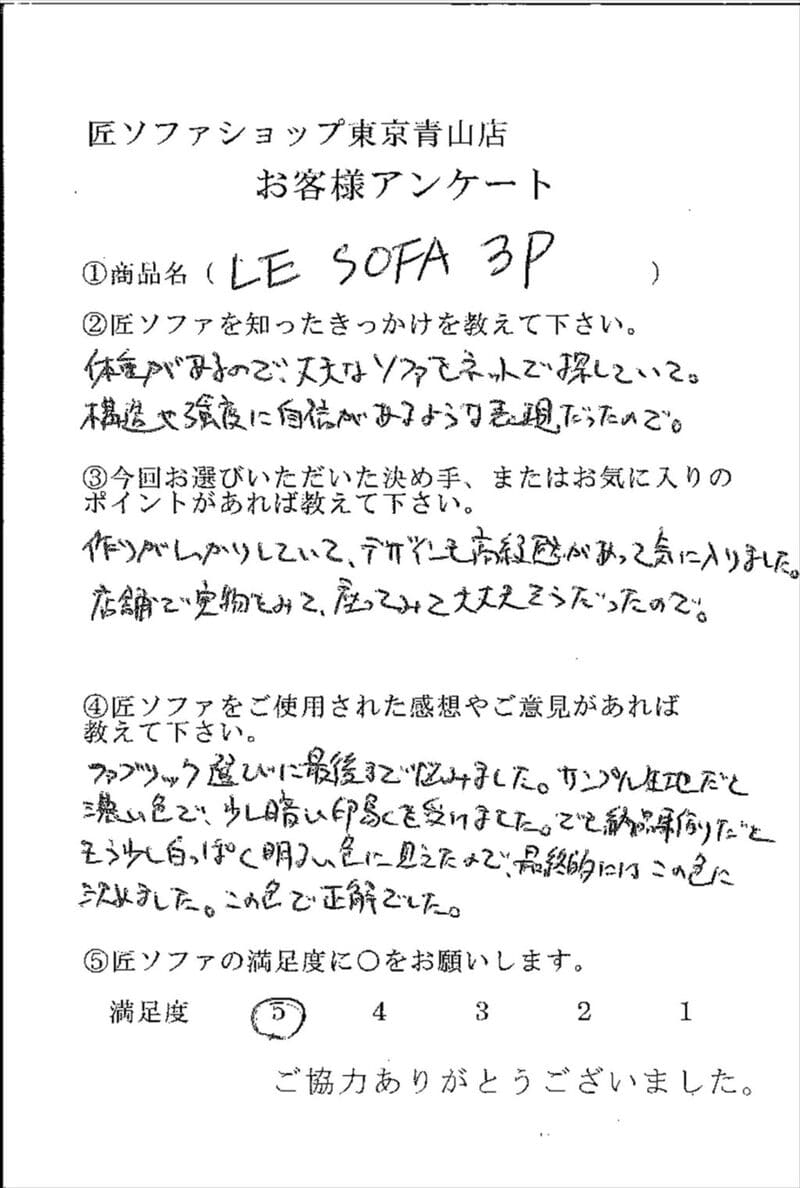 匠ソファショップ東京青山店
お客様アンケート
①商品名（ LE SOFA 3P ）
②匠ソファを知ったきっかけを教えて下さい。
体重があるので、丈夫なソファをネットで探していて。
構造や強度に自信があるような表現だったので。
③今回お選びいただいた決め手、またはお気に入りの
ポイントがあれば教えて下さい。
作りがしっかりしていて、デザインも高級感があって気に入りました。
店舗で実物をみて、座ってみて大丈夫そうだったので。
④匠ソファをご使用された感想やご意見があれば
教えて下さい。
ファブリック選びに最後まで悩みました。サンプル生地だと
濃い色で、少し暗い印象を受けました。でも納品事例だと
もう少し白っぽく明るい色に見えたので、最終的にはこの色に
決めました。この色で正解でした。
⑤匠ソファの満足度に〇をお願いします。
満足度 5 4 3 2 1
ご協力ありがとうございました。